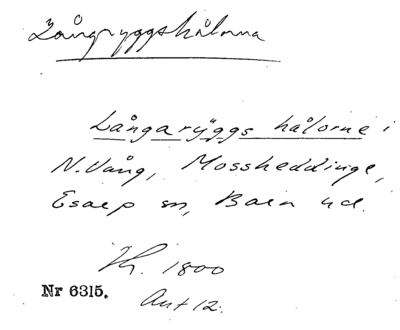 Långryggshålorna
Långaryggs hålorne i
N. Vång, Mossheddinge,
Esarp sn, Bara hd.
Kh. 1800
Nr 6315.
Akt 12.